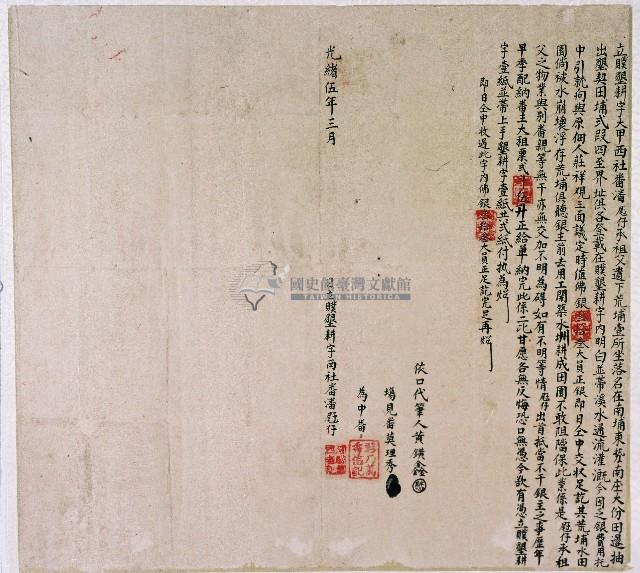 立贌墾耕字大甲西社番潘尫仔承祖父遺下荒埔壹所坐落名在南埔東勢南庄大份田邊抽
出墾契田埔弍段四至界址俱各登載在贌墾耕字內明白並帶溪水通流灌溉今因乏銀費用托
中引就向與原佃人莊祥觀三面議定時值佛銀 叁大員正銀即日仝中交收足訖其荒埔水田
園倘被水崩壞浮存荒埔俱聽銀主前去用工開築水圳耕成田園不敢阻擋保此業係是尫仔承祖
父之物業與別番親等無干亦無交加不明為碍如有不明等情尫仔出首抵當不干銀主之事歷年
早季配納番主大租粟弍斗伍升正給單納完此係二比甘愿各無反悔恐口無憑今欲有憑立贌墾耕
字壹紙並帶上手墾耕字壹紙共弍紙付执為炤
即日仝中收過此字內佛銀 大員正足訖完足再炤
依口代筆人黃鐄鑫
塲見番莫理秀
為中番
光緒伍年三月 日立贌墾耕字西社番潘尫仔
國史館臺灣文獻館
TAIWAN HISTORICA